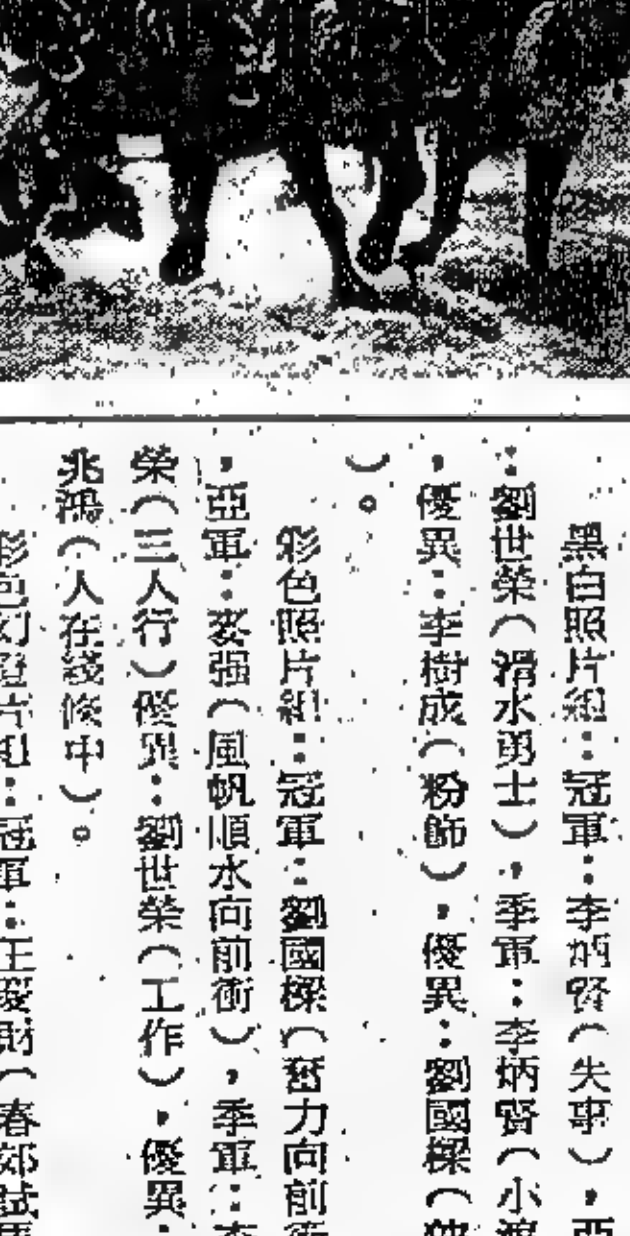 黑白照片組：冠軍：李炳賢（失事），亞
：劉世榮（滑水勇士），季軍：李炳賢（小
，優異：李樹成（粉飾），優異：劉國樑（
）。
彩色照片組：冠軍：劉國樑（奮力向前衝
，亞軍：麥强（風帆順水向前衝），季軍：李
榮（三人行）優異：劉世榮（工作），優異：
兆鴻（人在綫條中）。
彩色幻燈片組：冠軍：王愛財（春郊試馬